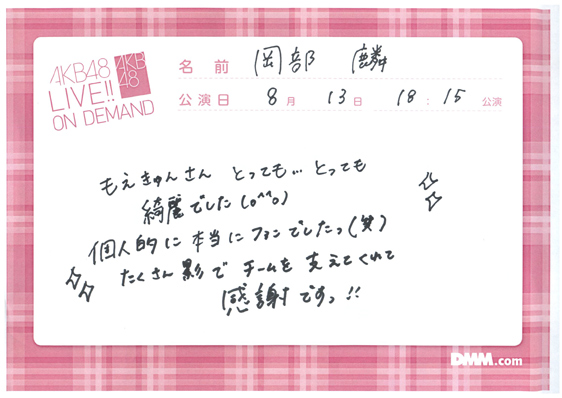 AKB48
LIVE!!
ON DEMAND
AKB
48
名前 岡部 麟
公演日 8月 13日 18:15 公演
もえきゅんさん とっても… とっても
綺麗でした(o^^o)
個人的に本当にファンでしたっ(笑)
たくさん影でチームを支えてくれて
感謝ですっ!!
DMM.com